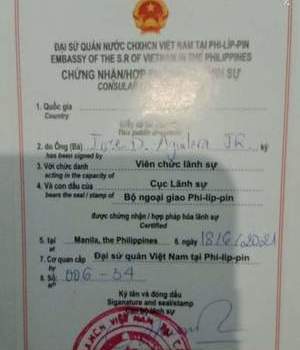 ĐẠI SỨ QUÁN NƯỚC CHXHCN VIỆT NAM TẠI PHI-LÍP-PIN
EMBASSY OF THE S.R OF VIETNAM IN THE PHILIPPINES
CHỨNG NHẬN/HỢP PIN SỰ
CONSULAR
1. Quốc gia
Country
This public document
2. do Ông (Bà) Jose D. JR. ký
has been signed by
3. Với chức danh Viên chức lãnh sự
acting in the capacity of
4. Và con dấu của Cục Lãnh sự
bears the seal / stamp of Bộ ngoại giao Phi-líp-pin
được chứng nhận / hợp pháp hóa lãnh sự
Certified
5. tại Manila, the Philippines 6. ngày 18/6/2021
at
7. Cơ quan cấp Đại sứ quán Việt Nam tại Phi-líp-pin
by
8. Số: 006-54
N°
Ký tên và đóng dấu
Siganature and seal/stamp